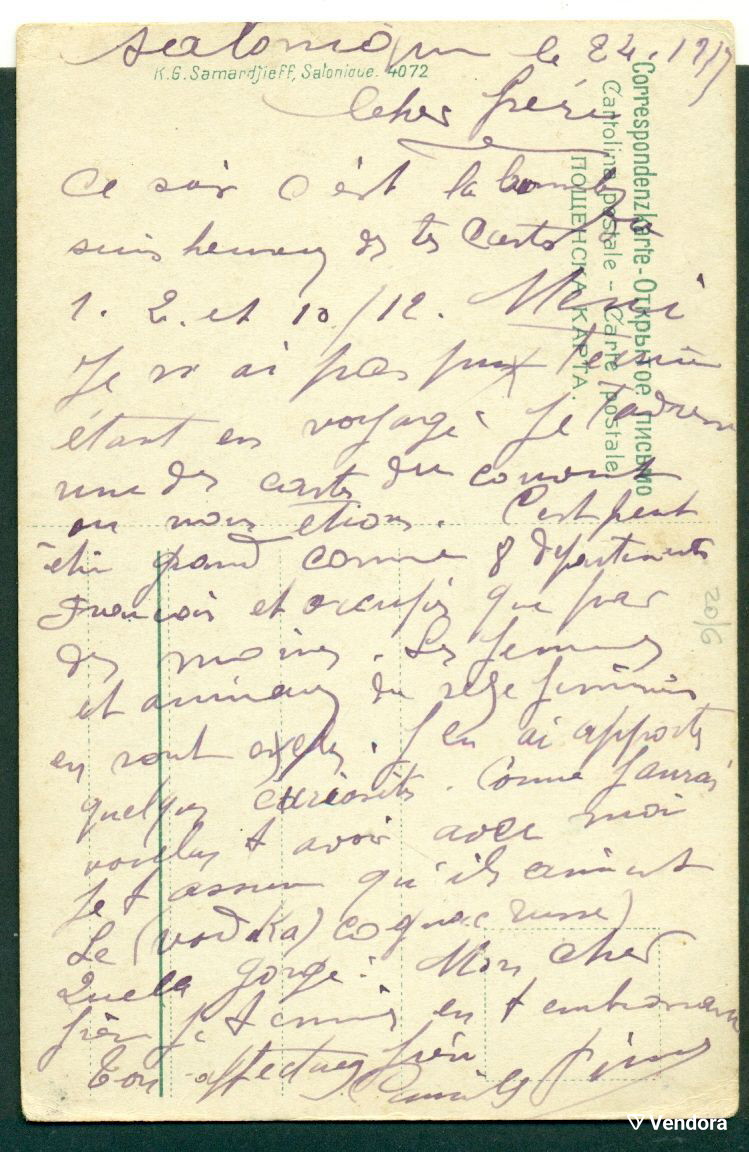 Salonique le 24.1917
K.G. Samardjieff, Salonique. 4072
Cher frère
Ce soir c'est la
suis heureux de tes Cartes
1. 2. et 10/12. Merci
Je n'ai pas pu
étant en voyage. Je t'adresse
une des cartes du couvent
ou nous étions. C'est peut
être grand comme 8 départements
Français et occupés que par
des moines. Les femmes
et animaux du sexe féminin
en sont exclus. J'en ai apporté
quelques curiosités. Comme j'aurai
voulu t avoir avec moi
Je t assure qu'ils aiment
Le (vodka) cognac russe)
Quelle gorge! Mon cher
frère je t en t embrassant
Ton affectueux frère
Correspondenzkarte - Открытое письмо
Cartolina postale -- Carte postale
ПОЩЕНСКА КАРТА.
20/6
Vendora